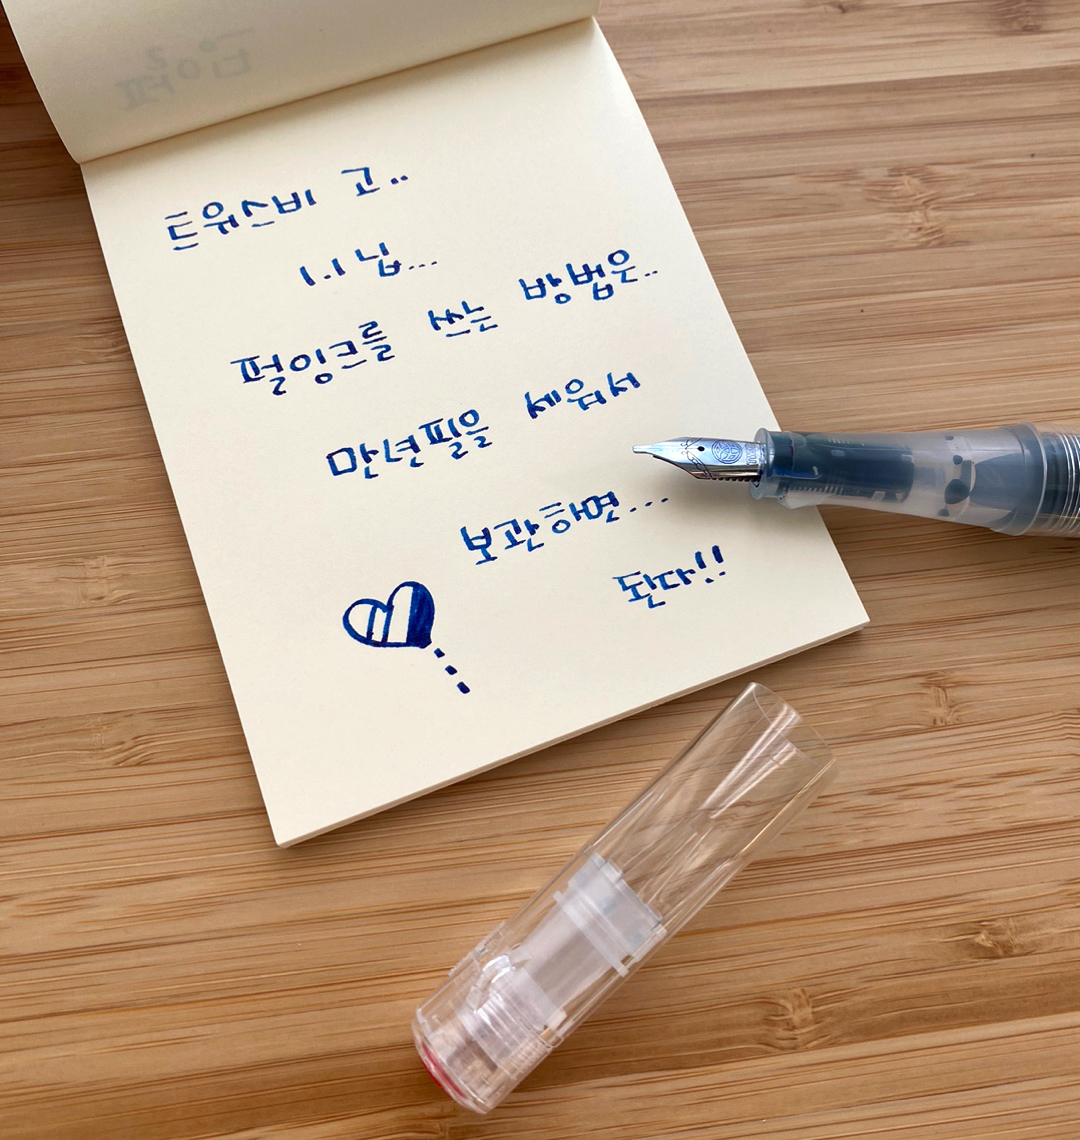 트위스비 고..
1.1 닙...
펄잉크를 쓰는 방법은..
만년필을 세워서
보관하면...
된다!!